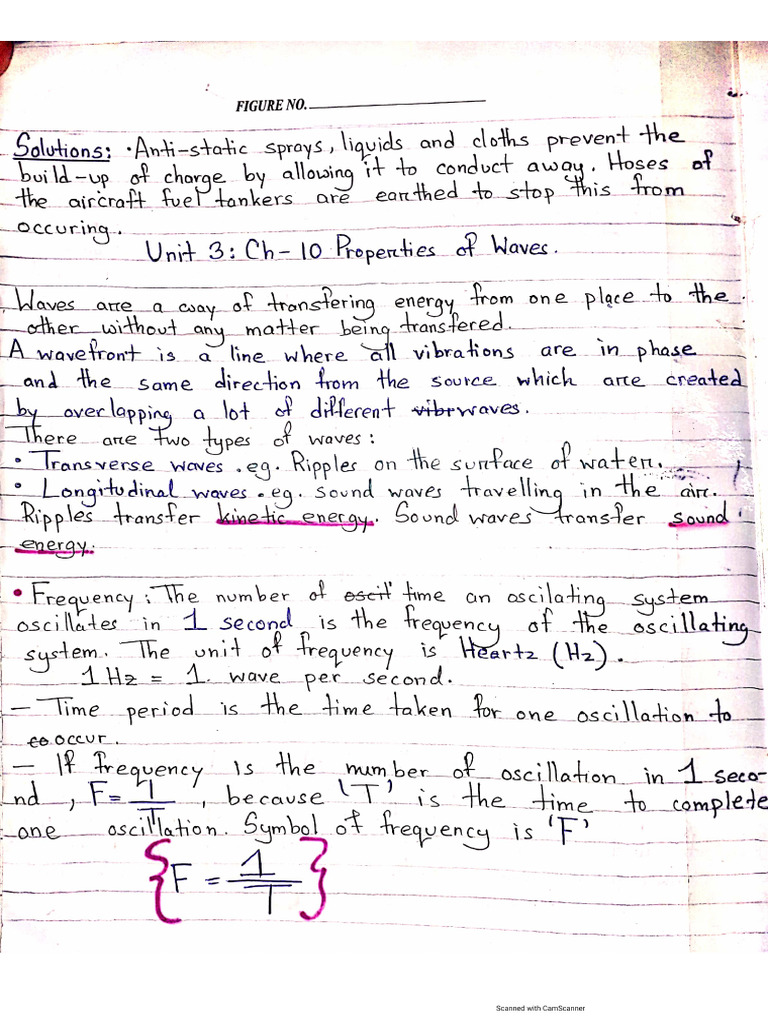 FIGURE NO.
Solutions: •Anti-static sprays, liquids and cloths prevent the
build-up of charge by allowing it to conduct away. Hoses of
the aircraft fuel tankers are earthed to stop this from
occuring.
Unit 3: Ch-10 Properties of Waves.
Waves are a way of transfering energy from one place to the
other without any matter being transfered.
A wavefront is a line where all vibrations are in phase
and the same direction from the source which are created
by overlapping a lot of different vibr waves.
There are two types of waves:
• Transverse waves. eg. Ripples on the surface of water.
• Longitudinal waves. eg. sound waves travelling in the air.
Ripples transfer kinetic energy. Sound waves transfer sound
energy.
• Frequency: The number of oscil time an oscilating system
oscillates in 1 second is the frequency of the oscillating
system. The unit of frequency is Heartz (Hz).
1 Hz = 1 wave per second.
– Time period is the time taken for one oscillation to
co occur.
– If frequency is the number of oscillation in 1 seco-
nd, F = 1/T, because 'T' is the time to complete
one oscillation. Symbol of frequency is 'F'
{F = 1/T}
Scanned with CamScanner